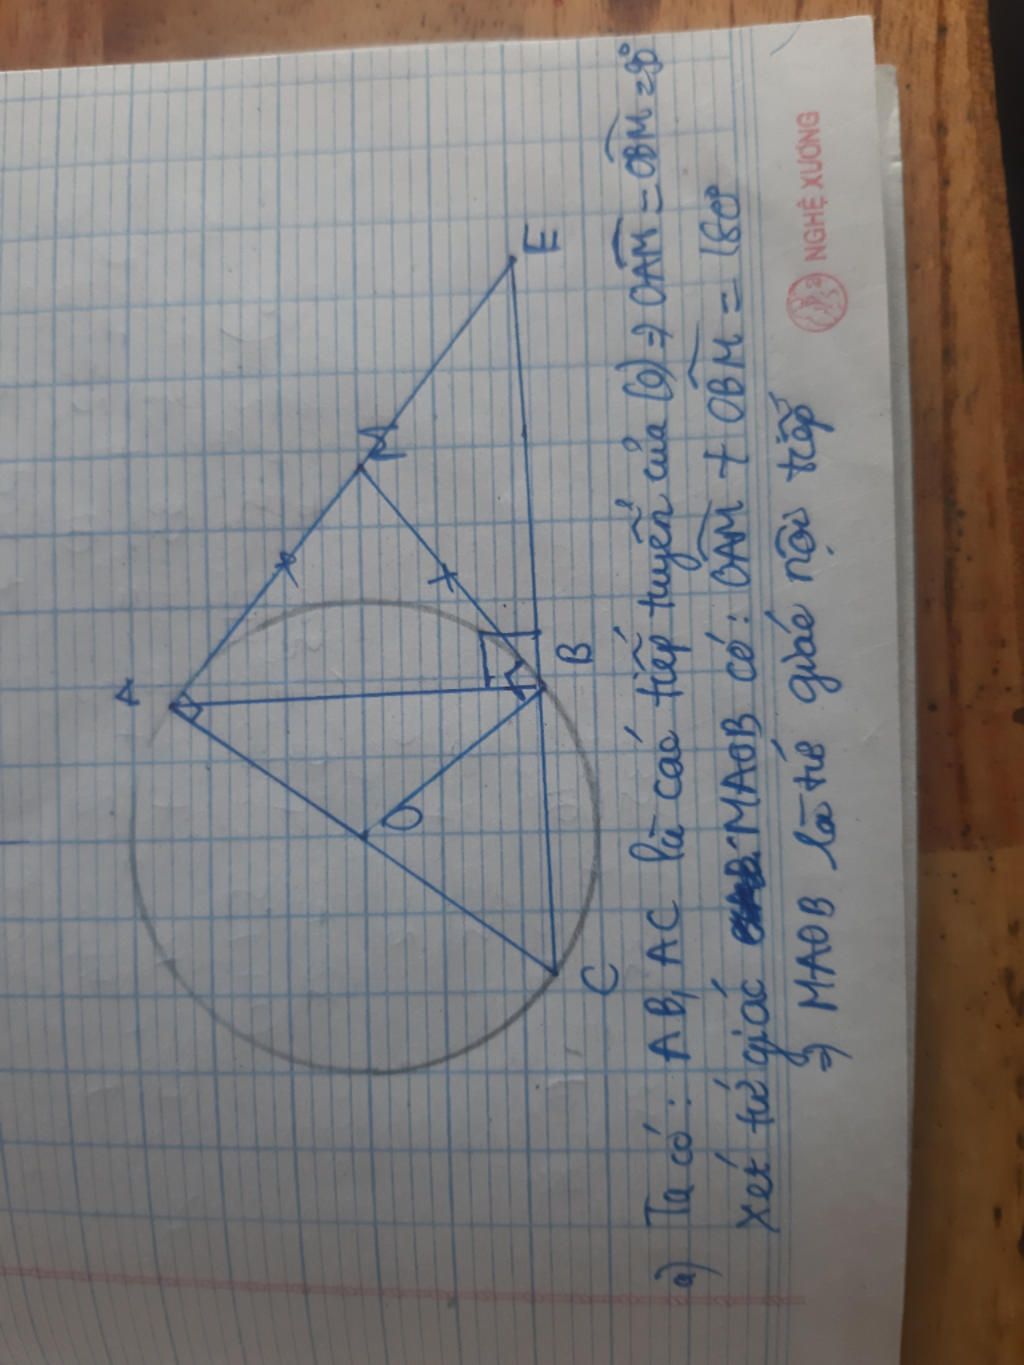 A
M
E
O
B
C
a) Ta có: AB, AC là các tiếp tuyến của (O) => OAM = OBM = 90°
Xét tứ giác MAOB có: OAM + OBM = 180°
=> MAOB là tứ giác nội tiếp
NGHỆ XƯƠNG